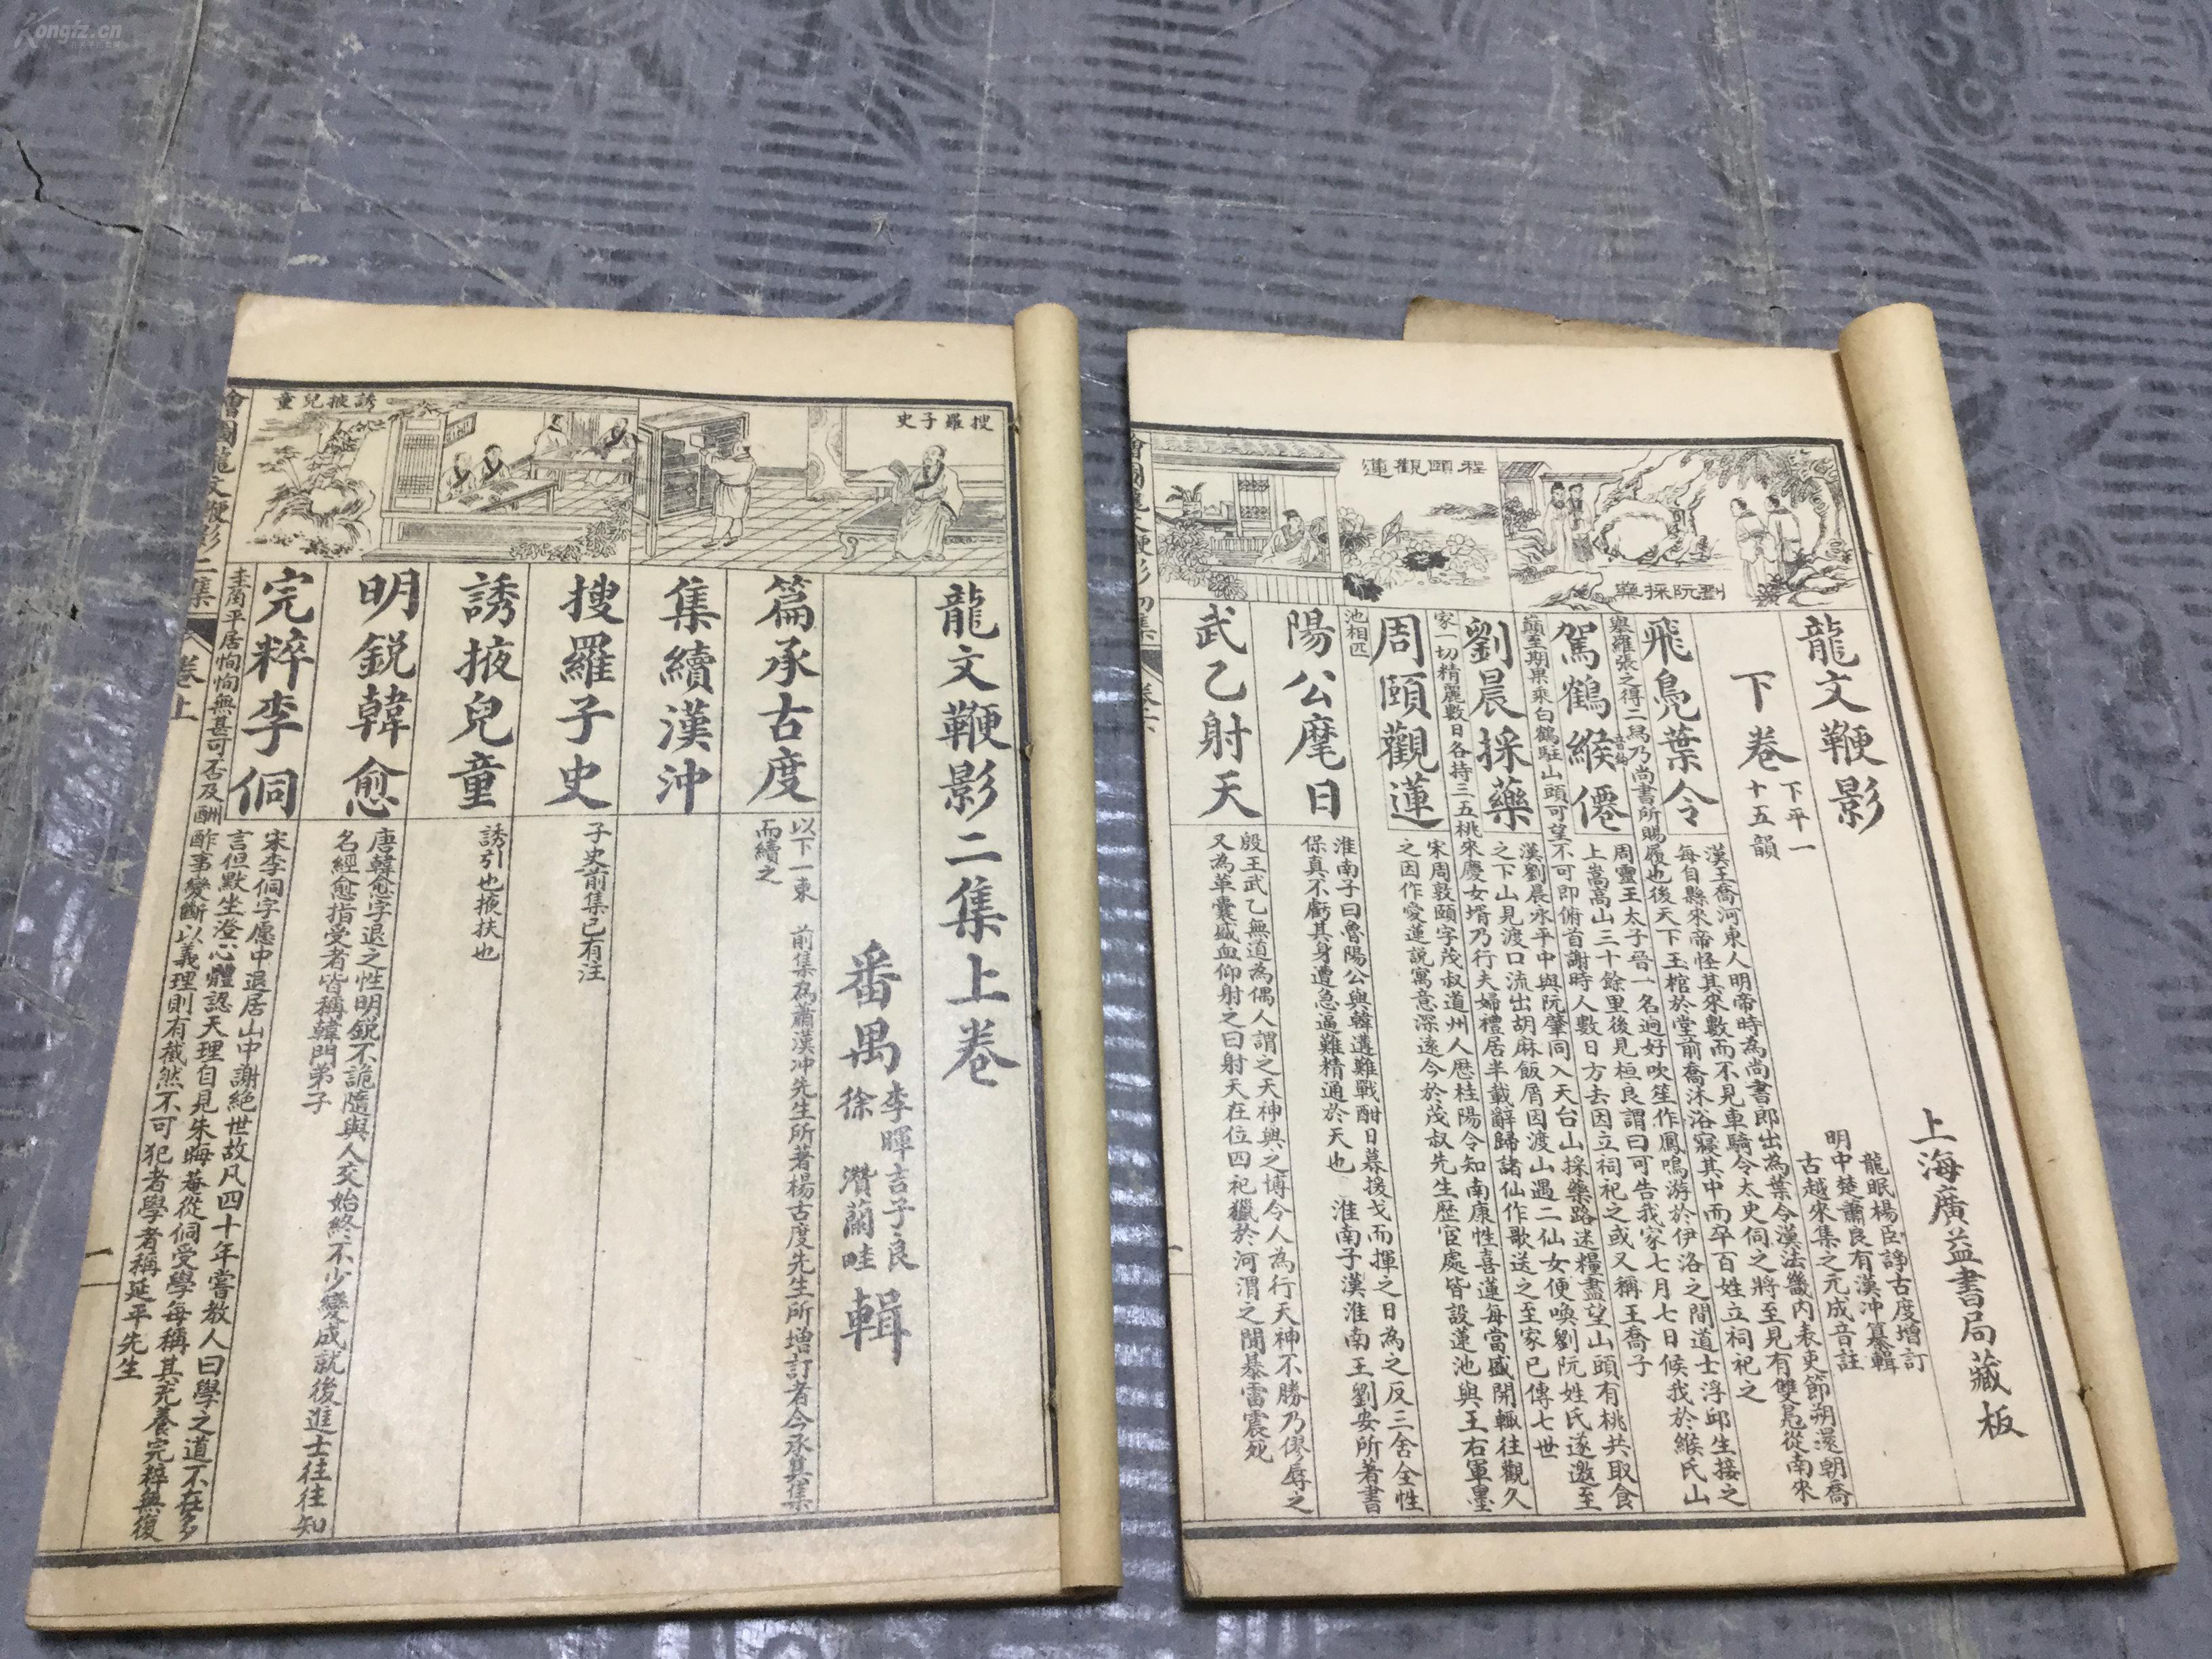 Kongfz.cn
搜羅子史
誘掖兒童
龍文鞭影二集上卷
番禺
李暉吉子良
徐灒蘭畦
輯
篇承古度
以下一東 前集為蕭漢沖先生所著楊古度先生所增訂者今承其集
而續之
集續漢沖
搜羅子史
子史前集已有注
誘掖兒童
誘引也掖扶也
明銳韓愈
唐韓愈字退之性明銳不詭隨與人交始終不少變成就後進士往往知
名經愈指受者皆稱韓門弟子
完粹李侗
宋李侗字愿中退居山中謝絕世故凡四十年嘗教人曰學之道不在多
言但默坐澄心體認天理自見朱晦菴從侗受學每稱其充養完粹無復
圭角平居恂恂無甚可否及酬酢事變斷以義理則有截然不可犯者學者稱延平先生
繪圖龍文鞭影二集
卷上
一
劉阮採藥
程頤觀蓮
龍文鞭影
上海廣益書局藏板
下卷
下平一
十五韻
龍眠楊臣諍古度增訂
明中楚蕭良有漢沖纂輯
古越來集之元成音註
飛鳧葉令
漢王喬河東人明帝時為尚書郎出為葉令漢法畿內表吏節朔還朝喬
每自縣來帝怪其來數而不見車騎令太史伺之將至見有雙鳧從南來
舉羅張之得二舄乃尚書所賜履也後天下玉棺於堂前喬沐浴寢其中而卒百姓立祠祀之
駕鶴緱僊
周靈王太子晉一名喬好吹笙作鳳鳴游於伊洛之間道士浮邱生接之
上嵩高山三十餘里後見桓良謂曰可告我家七月七日候我於緱氏山
巔至期果乘白鶴駐山頭可望不可即俯首謝時人數日方去因立祠祀之或又稱王喬子
劉晨採藥
漢劉晨永平中與阮肇同入天台山採藥路迷糧盡望山頭有桃共取食
之下山見渡口流出胡麻飯屑因渡山遇二仙女便喚劉阮姓氏遂邀至
家一切精麗數日各持三五桃來慶女壻乃行夫婦禮居半載辭歸諸仙作歌送之至家已傳七世
周頤觀蓮
宋周敦頤字茂叔道州人歷桂陽令知南康性喜蓮每當盛開輒往觀久
之因作愛蓮說寓意深遠今於茂叔先生歷宦處皆設蓮池與王右軍墨
池相匹
陽公麾日
淮南子曰魯陽公與韓遘難戰酣日暮援戈而揮之日為之反三舍全性
保真不虧其身遭急逼難精通於天也 淮南子漢淮南王劉安所著書
武乙射天
殷王武乙無道為偶人謂之天神與之博令人為行天神不勝乃僇辱之
又為革囊盛血仰射之曰射天在位四祀獵於河渭之間暴雷震死